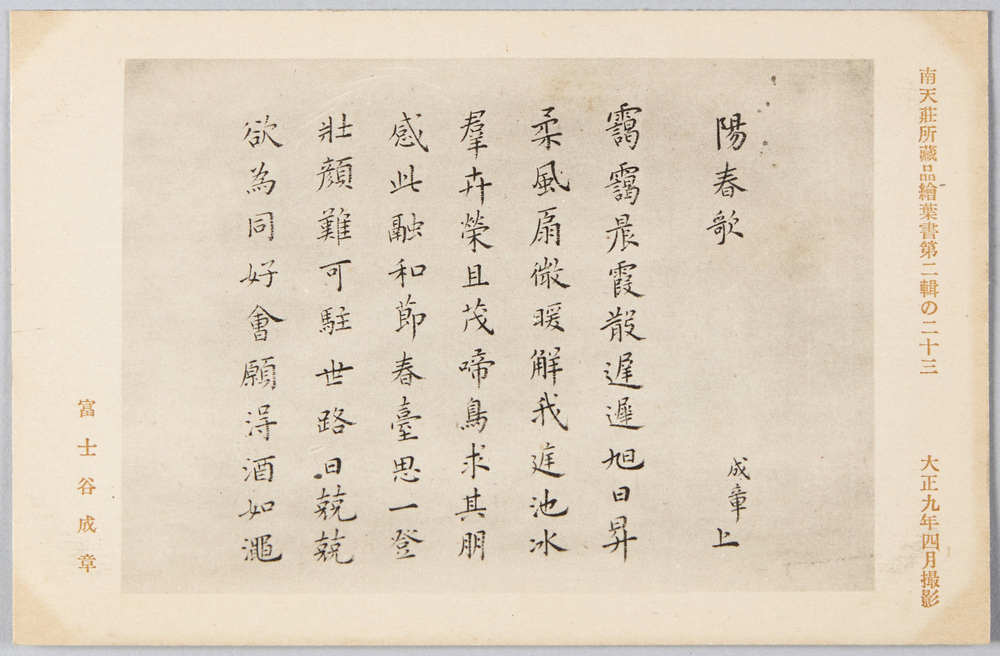 南天莊所藏品繪葉書第二輯の二十三
大正九年四月撮影
陽春歌
成章上
靄靄晨霞散遲遲旭日昇
柔風扇微暖解我庭池冰
羣卉榮且茂啼鳥求其朋
感此融和節春臺思一登
壯顏難可駐世路日兢兢
欲為同好會願得酒如澠
富士谷成章